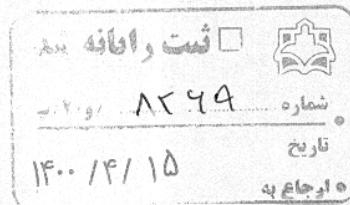 ثبت رایانه شد
شماره ۸۲۶۹
تاریخ ۱۴۰۰/۴/۱۵
ارجاع به